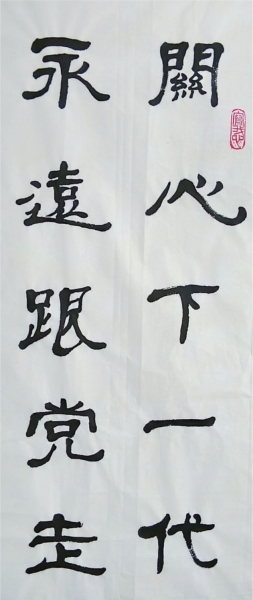 關心下一代
永遠跟党走